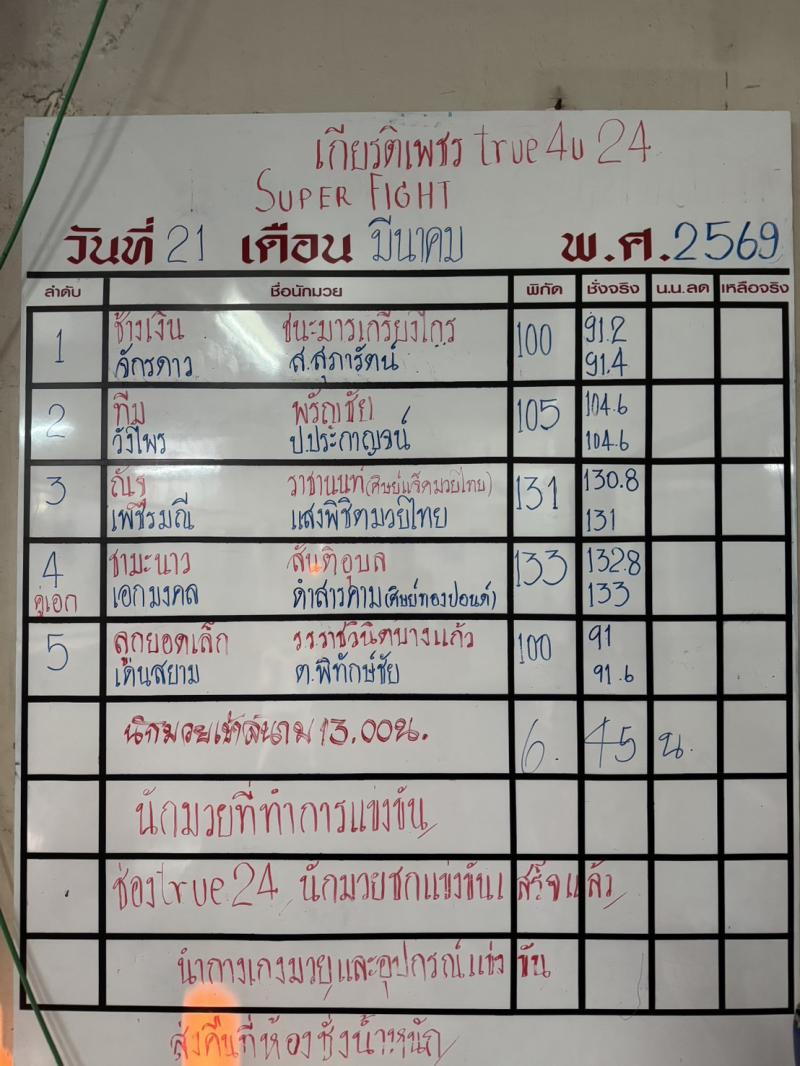 เกียรติเพชร true4u 24
SUPER FIGHT
วันที่ 21 เดือน มีนาคม พ.ศ.2569
ลำดับ ชื่อนักมวย พิกัด ชั่งจริง น.น.ลด เหลือจริง
1 ช้างเงิน ชนะมารเกรียงไกร 100 91.2
จักรดาว ส.สุภารัตน์ 91.4
2 ทีม พรัญชัย 105 104.6
วังไพร ป.ประกาญจน์ 104.6
3 ราชานนท์ (ศิษย์แจ็คมวยไทย) 131 130.8
เพชรมณี แสงพิชิตมวยไทย 131
4 ชามะนาว สันติอุบล 133 132.8
คู่เอก เอกมงคล ดำสารคาม (ศิษย์ทองปอนด์) 133
5 ลูกยอดเล็ก รร.ราชวินิตบางแก้ว 100 91
เด่นสยาม ต.พิทักษ์ชัย 91.6
นักมวยเข้าสนาม 13.00น. 6. 45 น.
นักมวยที่ทำการแข่งขัน
ช่องtrue24 นักมวยชกแข่งขันเสร็จแล้ว
นำกางเกงมวยและอุปกรณ์แข่งขัน
ส่งคืนที่ห้องชั่งน้ำหนัก